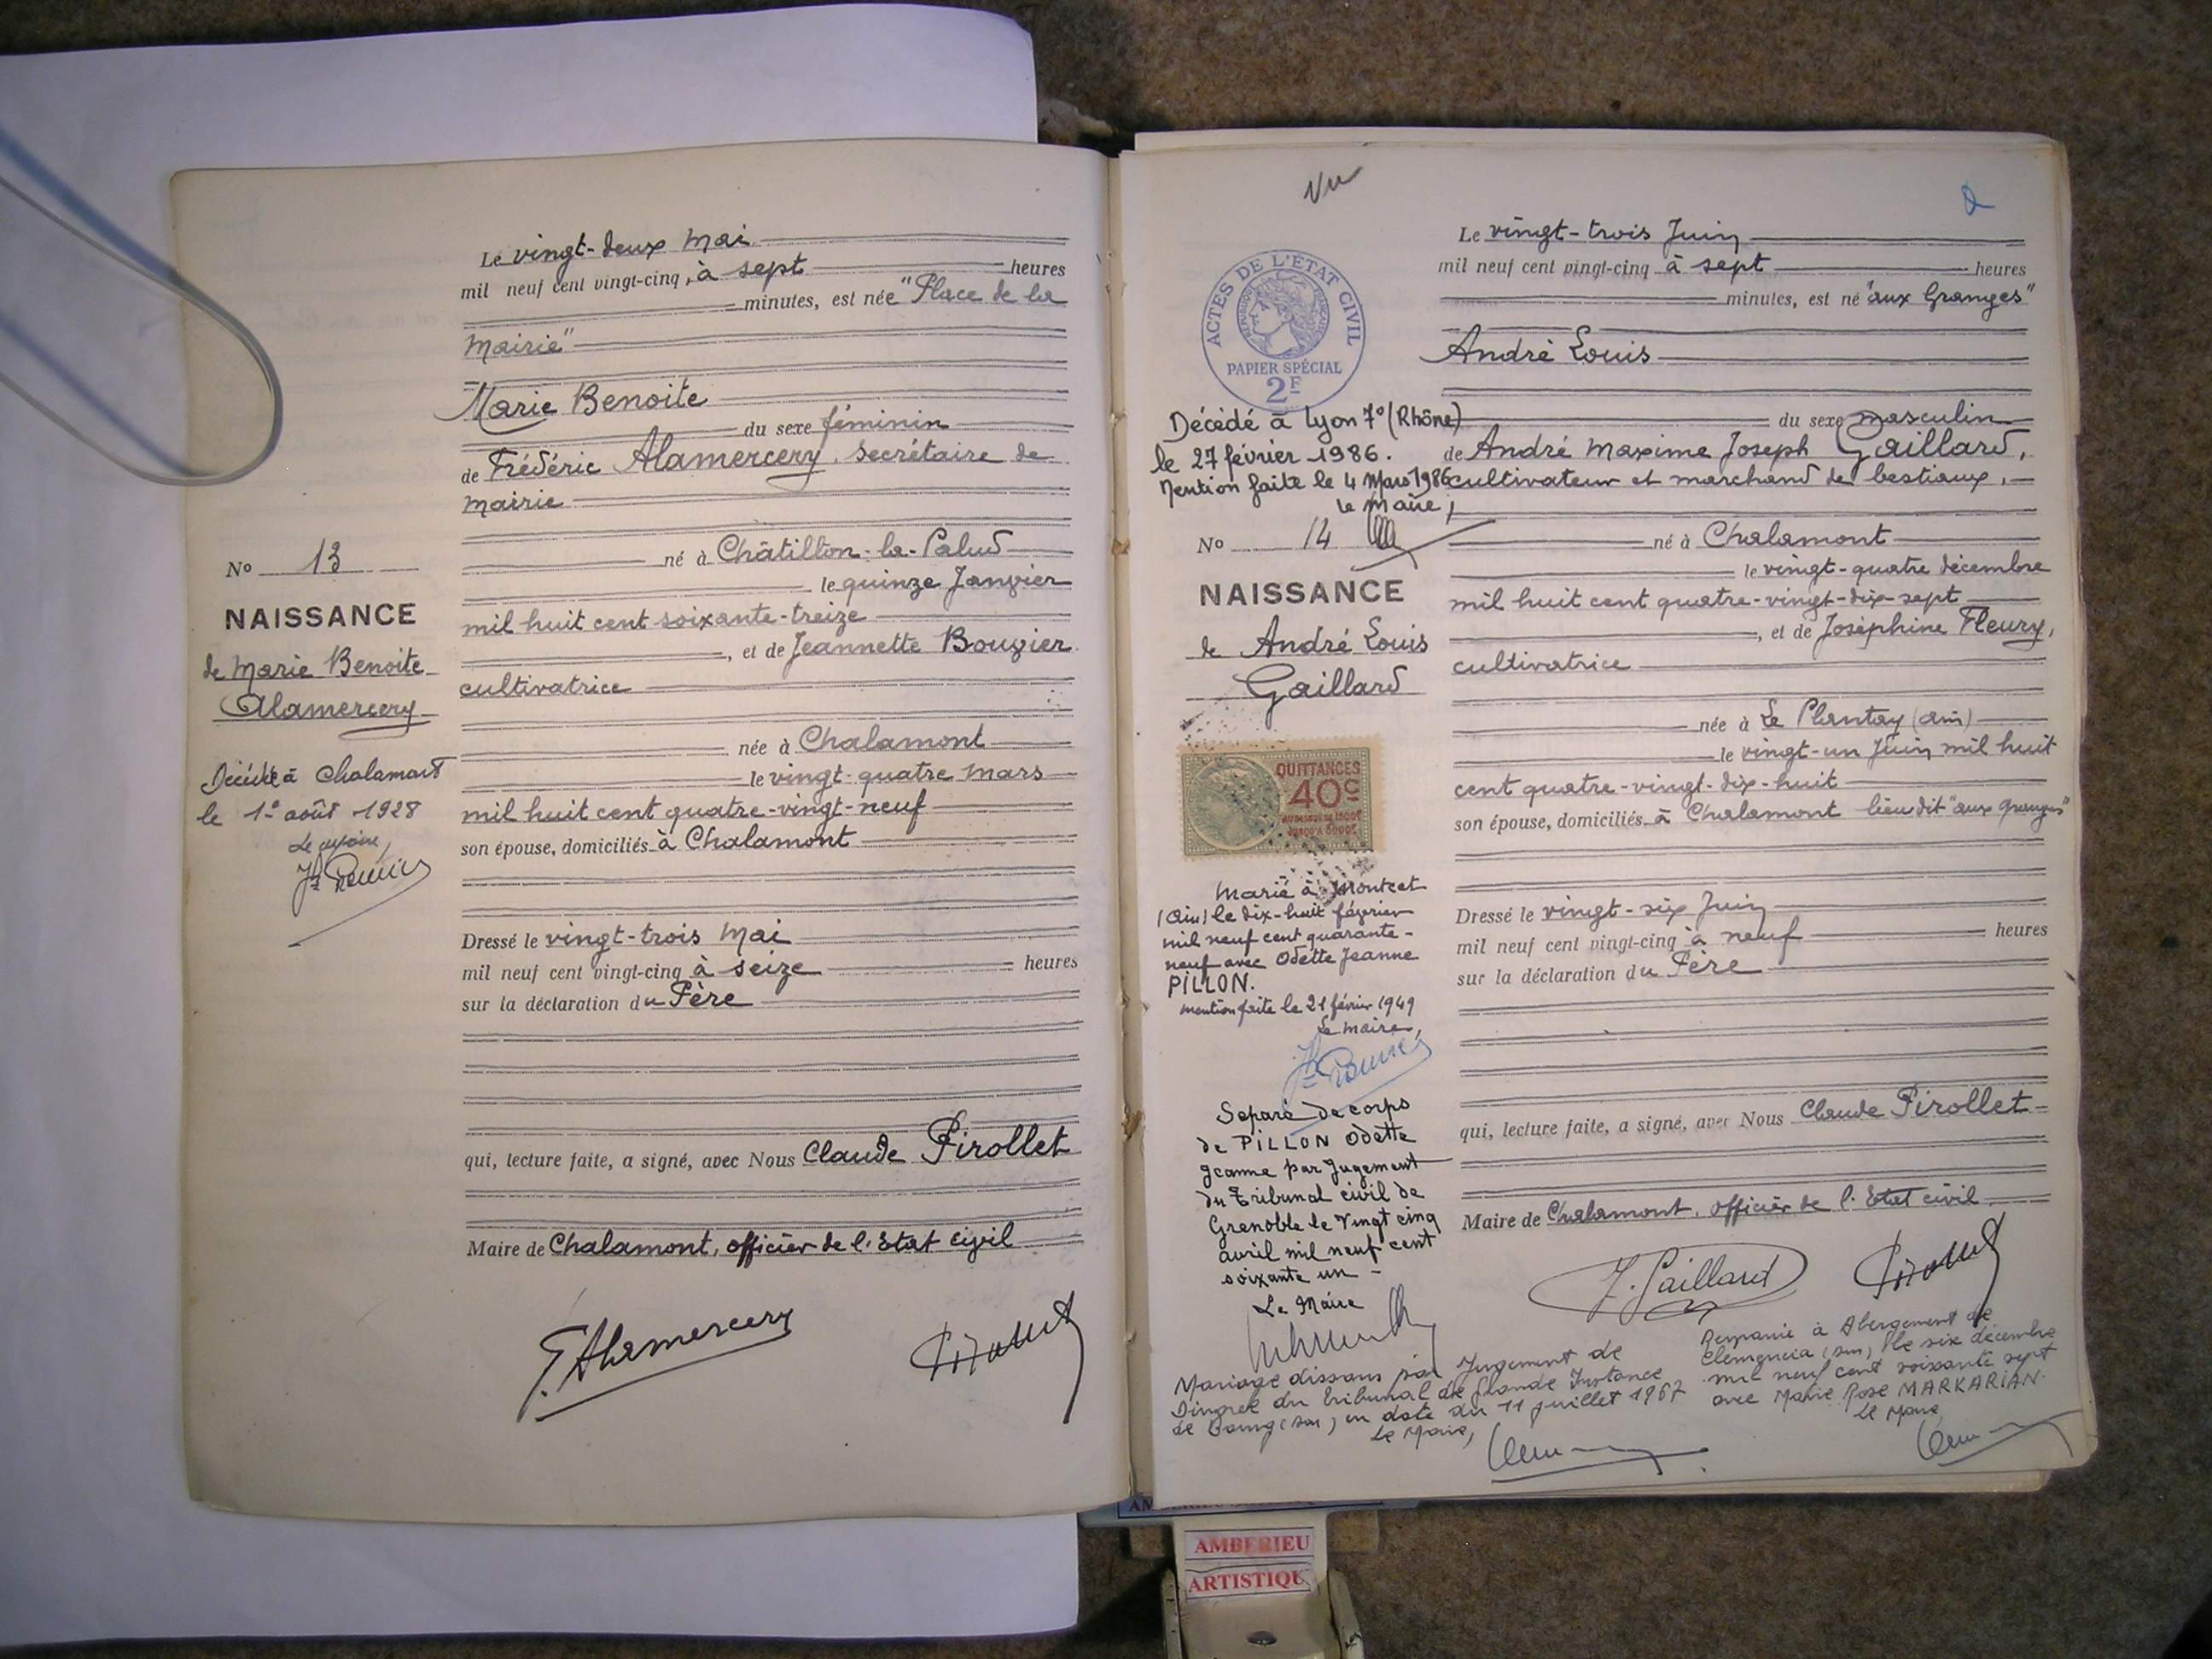 Le vingt-deux Mai
mil neuf cent vingt-cinq, à sept heures
minutes, est née "Place de la
Mairie"
Marie Benoite
du sexe féminin
de Frédéric Alamercery, Secrétaire de
mairie
né à Châtillon-la-Palud
le quinze Janvier
mil huit cent soixante-treize
, et de Jeannette Bouvier
cultivatrice
née à Chalamont
le vingt-quatre Mars
mil huit cent quatre-vingt-neuf
son épouse, domiciliés à Chalamont
Dressé le vingt-trois Mai
mil neuf cent vingt-cinq à seize heures
sur la déclaration du Père
qui, lecture faite, a signé, avec Nous Claude Pirollet
Maire de Chalamont, officier de l'Etat civil
F. Alamercery
No 13
NAISSANCE
de Marie Benoite
Alamercery
Décédée à Chalamont
le 1er août 1928
Vu
ACTES DE L'ÉTAT CIVIL
RÉPUBLIQUE FRANÇAISE
PAPIER SPÉCIAL
2F
Décédé à Lyon 7° (Rhône)
le 27 février 1986.
Mention faite le 4 Mars 1986
Le Maire,
No 14
NAISSANCE
de André Louis
Gaillard
QUITTANCES
40c
Marié à Montcet
(Ain) le dix-huit février
mil neuf cent quarante-
neuf avec Odette Jeanne
PILLON.
mention faite le 21 février 1949
Le maire,
Séparé de corps
de PILLON Odette
Jeanne par Jugement
du Tribunal civil de
Grenoble le Vingt cinq
avril mil neuf cent
soixante un -
Le Maire
Mariage dissous par Jugement de
Divorce du Tribunal de Grande Instance
de Bourg (Ain) en date du 11 juillet 1967
Le Maire,
Le vingt-trois Juin
mil neuf cent vingt-cinq à sept heures
minutes, est né "aux Granges"
André Louis
du sexe masculin
de André Maxime Joseph Gaillard,
cultivateur et marchand de bestiaux,
né à Chalamont
le vingt-quatre décembre
mil huit cent quatre-vingt-dix-sept
, et de Joséphine Fleury,
cultivatrice
née à Le Plantay (Ain)
le vingt-un Juin mil huit
cent quatre-vingt-dix-huit
son épouse, domiciliés à Chalamont lieu dit "aux Granges"
Dressé le vingt-six Juin
mil neuf cent vingt-cinq à neuf heures
sur la déclaration du Père
qui, lecture faite, a signé, avec Nous Claude Pirollet
Maire de Chalamont, officier de l'Etat civil
J. Gaillard
Remarié à Abergement de
Clémencia (Ain) le six décembre
mil neuf cent soixante sept
avec Marie Rose MARKARIAN.
Le Maire,
AMBERIEU
ARTISTIQUE